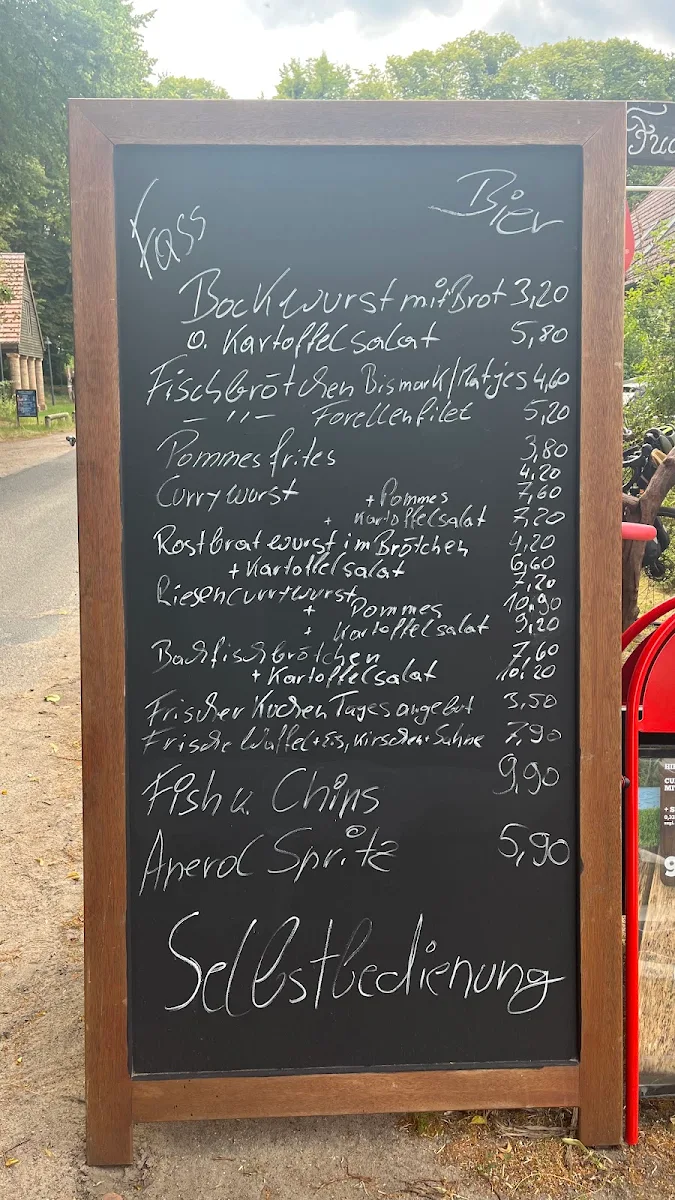 Fass Bier
Bockwurst mit Brot 3,20
o. Kartoffelsalat 5,80
Fischbrötchen Bismark/Matjes 4,60
— " — Forellenfilet 5,20
Pommes frites 3,80
Currywurst 4,20
+ Pommes 7,60
+ Kartoffelsalat 7,20
Rostbratwurst im Brötchen 4,20
+ Kartoffelsalat 6,60
Riesencurrywurst 7,20
+ Pommes 10,90
+ Kartoffelsalat 9,20
Backfischbrötchen 7,60
+ Kartoffelsalat 10,20
Frischer Kuchen Tagesangebot 3,50
Frische Waffel + Eis, Kirschen + Sahne 7,90
Fish u. Chips 9,90
Aperol Spritz 5,90
Selbstbedienung